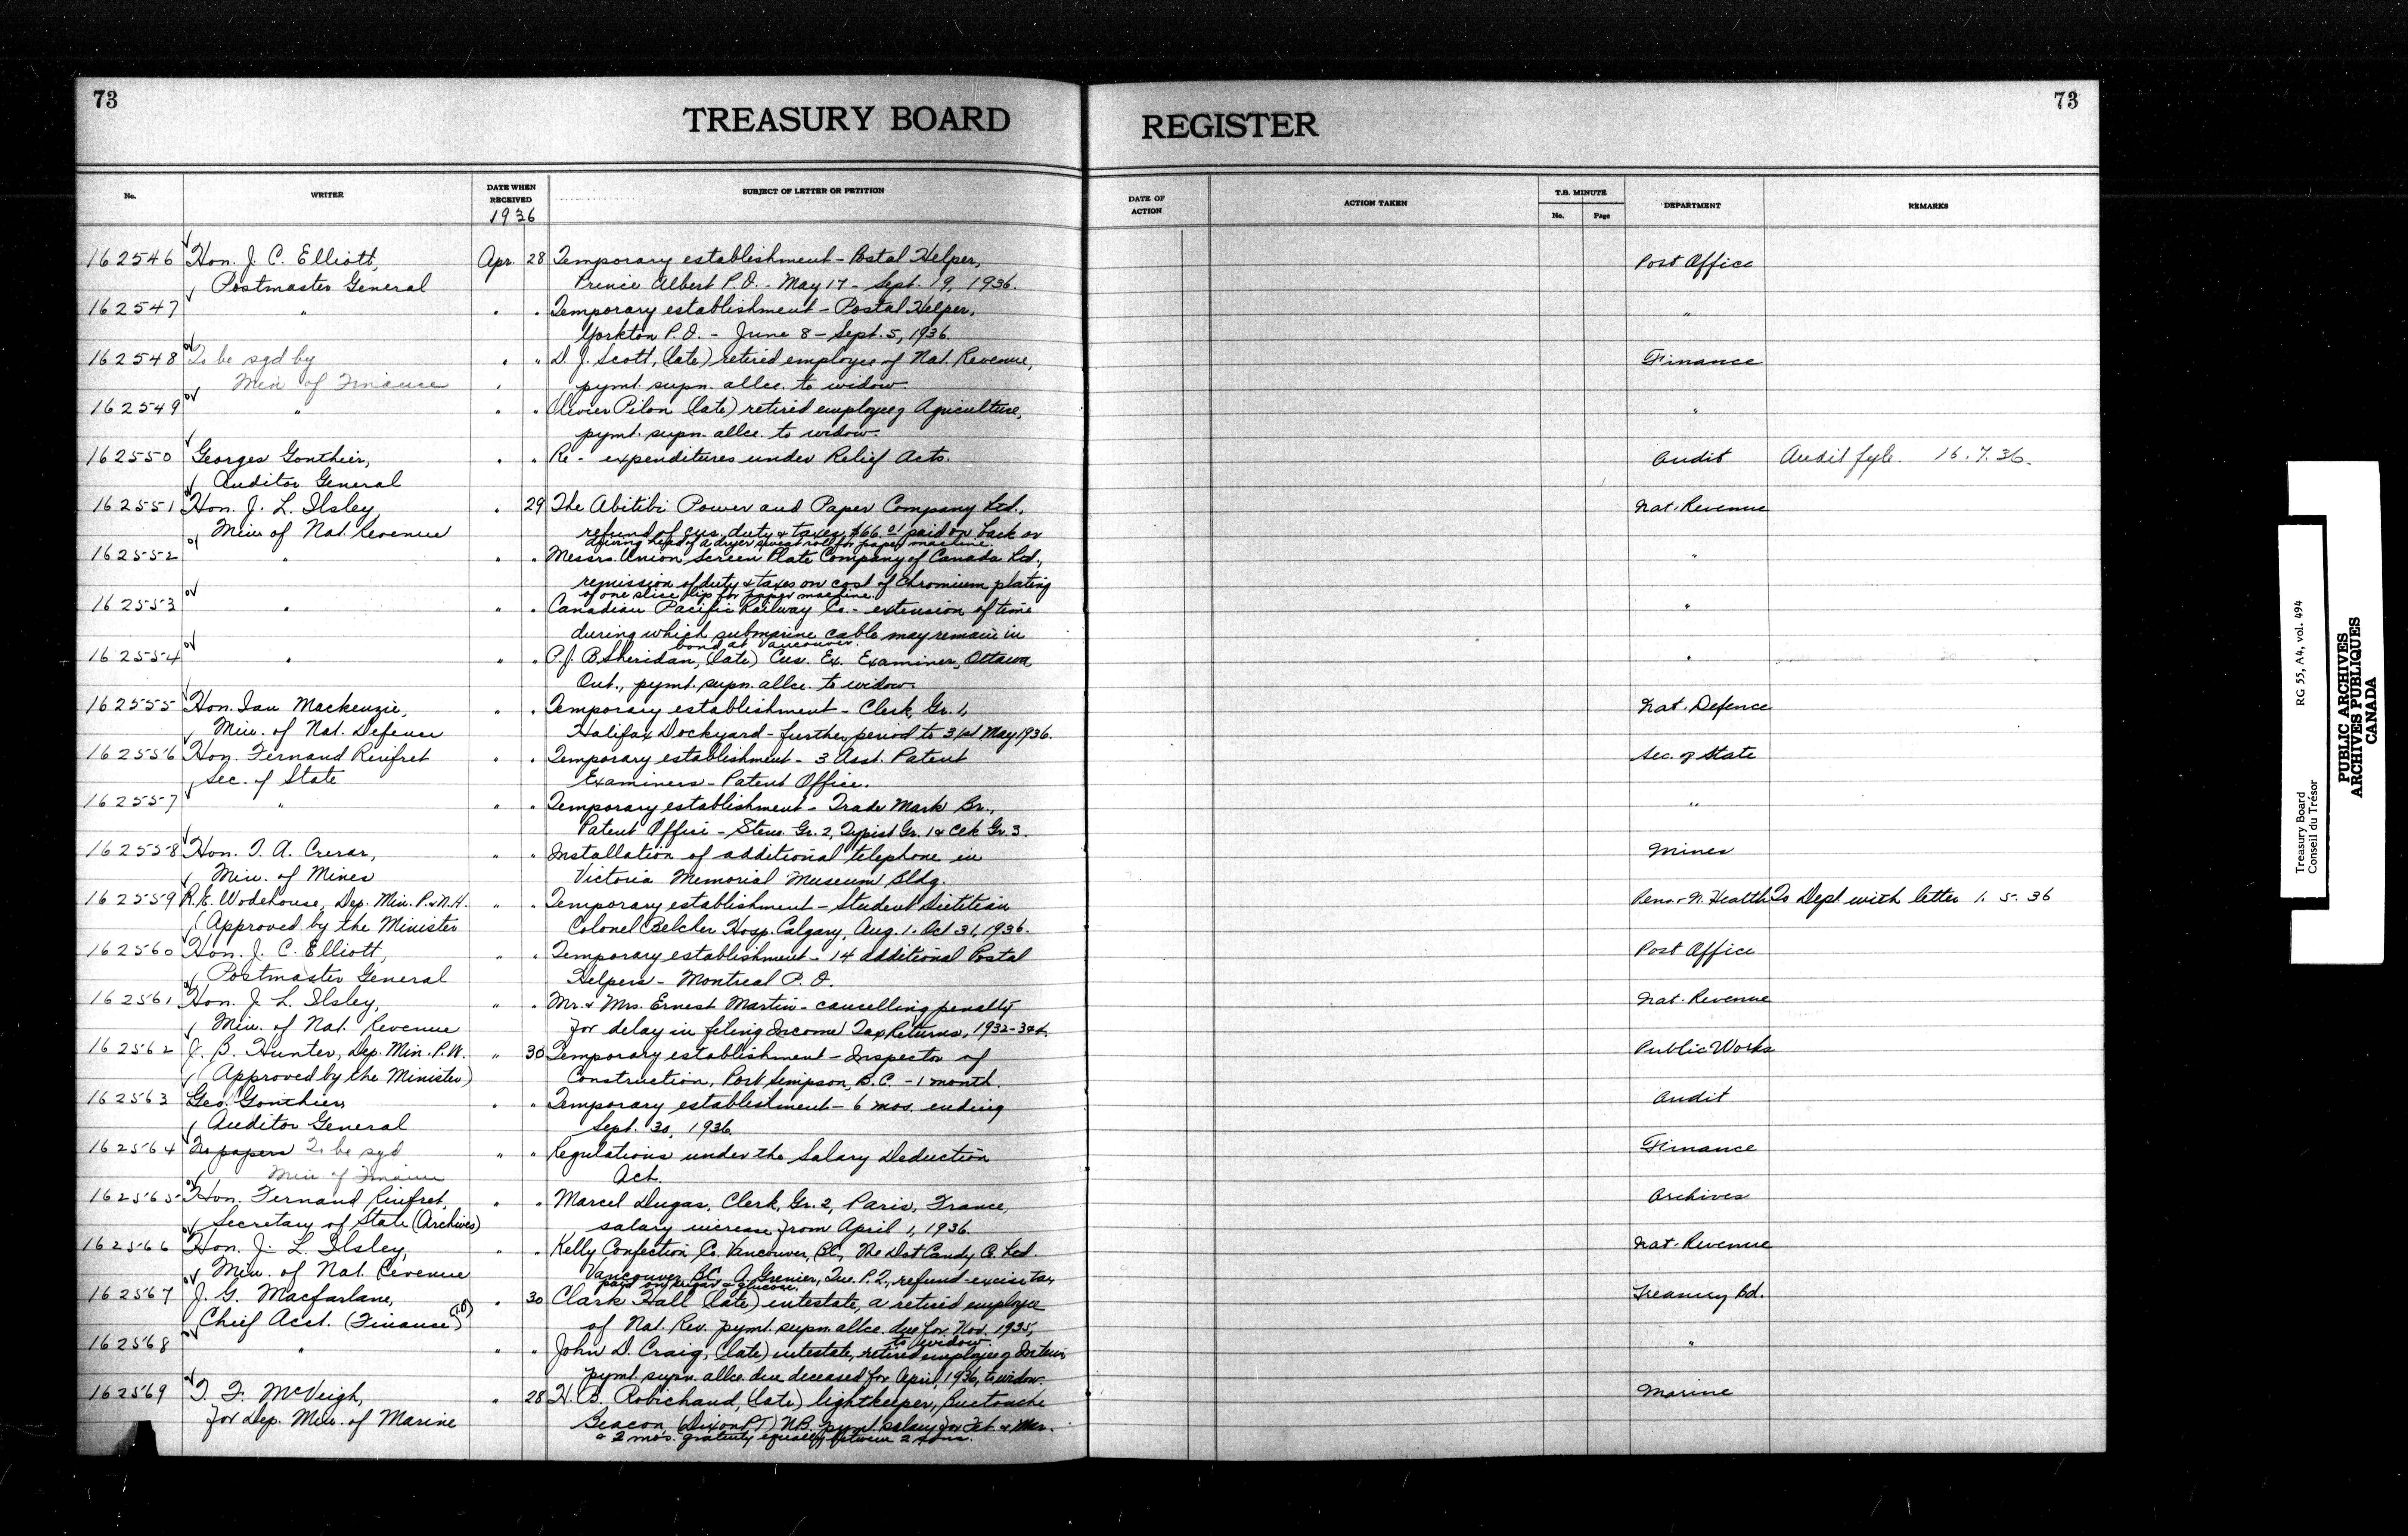 73
TREASURY BOARD
REGISTER
73
No.
WRITER
DATE WHEN RECEIVED
1936
SUBJECT OF LETTER OR PETITION
DATE OF ACTION
ACTION TAKEN
T.B. MINUTE
No.
Page
DEPARTMENT
REMARKS
162546 Hon. J. C. Elliott, Apr. 28 Temporary establishment - Postal Helper, Post Office
Postmaster General Prince Albert P.O. - May 17 - Sept. 19, 1936.
162547 " " " Temporary establishment - Postal Helper, "
Yorkton P.O. - June 8 - Sept. 5, 1936.
162548 To be sgd by " " D. J. Scott, (late) retired employee of Nat. Revenue, Finance
Min of Finance pymt. supn. allce. to widow.
162549 " " " Olivier Pilon (late) retired employee of Agriculture, "
pymt. supn. allce. to widow.
162550 Georges Gonthier, " " Re - expenditures under Relief Acts. Audit Audit fyle. 16.7.36.
Auditor General
162551 Hon. J. L. Ilsley, " 29 The Abitibi Power and Paper Company Ltd., Nat. Revenue
Min of Nat. Revenue refund of cus. duty & taxes, $66.01 paid on back or
driving head of a dryer sweat roll for paper machine.
162552 " " " Messrs. Union Screen Plate Company of Canada Ltd., "
remission of duty & taxes on cost of chromium plating
of one slice lip for paper machine.
162553 " " " Canadian Pacific Railway Co. - extension of time "
during which submarine cable may remain in
bond at Vancouver.
162554 " " " P. J. B. Sheridan, (late) Cus. Ex. Examiner, Ottawa, "
Ont., pymt. supn. allce. to widow.
162555 Hon. Ian Mackenzie, " " Temporary establishment - Clerk, Gr. 1, Nat. Defence
Min. of Nat. Defence Halifax Dockyard - further period to 31st May 1936.
162556 Hon. Fernand Rinfret " " Temporary establishment - 3 Asst. Patent Sec. of State
Sec. of State Examiners - Patent Office.
162557 " " " Temporary establishment - Trade Mark Br., "
Patent Office - Steno. Gr. 2, Typist Gr. 1 & Clk Gr. 3.
162558 Hon. T. A. Crerar, " " Installation of additional telephone in Mines
Min. of Mines Victoria Memorial Museum Bldg.
162559 R. E. Wodehouse, Dep. Min. P. & N.H. " " Temporary establishment - Student Dietitian Pens. & N. Health To Dept with letter 1. 5. 36
(Approved by the Minister Colonel Belcher Hosp. Calgary, Aug. 1 - Oct 31, 1936.
162560 Hon. J. C. Elliott, " " Temporary establishment - 14 additional Postal Post Office
Postmaster General Helpers - Montreal P.O.
162561 Hon. J. L. Ilsley, " " Mr. & Mrs. Ernest Martin - cancelling penalty Nat. Revenue
Min. of Nat. Revenue for delay in filing Income Tax Returns, 1932-34
162562 J. B. Hunter, Dep. Min. P.W. " 30 Temporary establishment - Inspector of Public Works
(Approved by the Minister) Construction, Port Simpson, B.C. - 1 month.
162563 Geo. Gonthier, " " Temporary establishment - 6 mos. ending Audit
Auditor General Sept. 30, 1936.
162564 No papers To be sgd " " Regulations under the Salary Deduction Finance
Min of Finance Act.
162565 Hon. Fernand Rinfret, " " Marcel Dugas, Clerk, Gr. 2, Paris, France, Archives
Secretary of State (Archives) salary increase from April 1, 1936.
162566 Hon. J. L. Ilsley, " " Kelly Confection Co. Vancouver, B.C., The Dot Candy Co. Ltd. Nat. Revenue
Min. of Nat. Revenue Vancouver, B.C. A. Grenier, Que. P.Q., refund - excise tax
paid on sugar & glucose.
162567 J. G. Macfarlane, " 30 Clark Hall (late) intestate, a retired employee Treasury Bd.
Chief Acct. (Finance) (T.O) of Nat. Rev. pymt. supn. allce. due for Nov. 1935,
to widow
162568 " " " John D. Craig, (late) intestate, retired employee of Interior "
pymt. supn. allce. due deceased for April, 1936, to widow.
162569 T. F. McVeigh, " 28 H. B. Robichaud, (late) lightkeeper, Buctouche Marine
for Dep. Min. of Marine Beacon, (Dixon Pt) N.B. pymt. salary for Feb. & Mar.
& 2 mos. gratuity equally between 2 sons.
Treasury Board RG 55, A4, vol. 494
Conseil du Trésor
PUBLIC ARCHIVES
ARCHIVES PUBLIQUES
CANADA